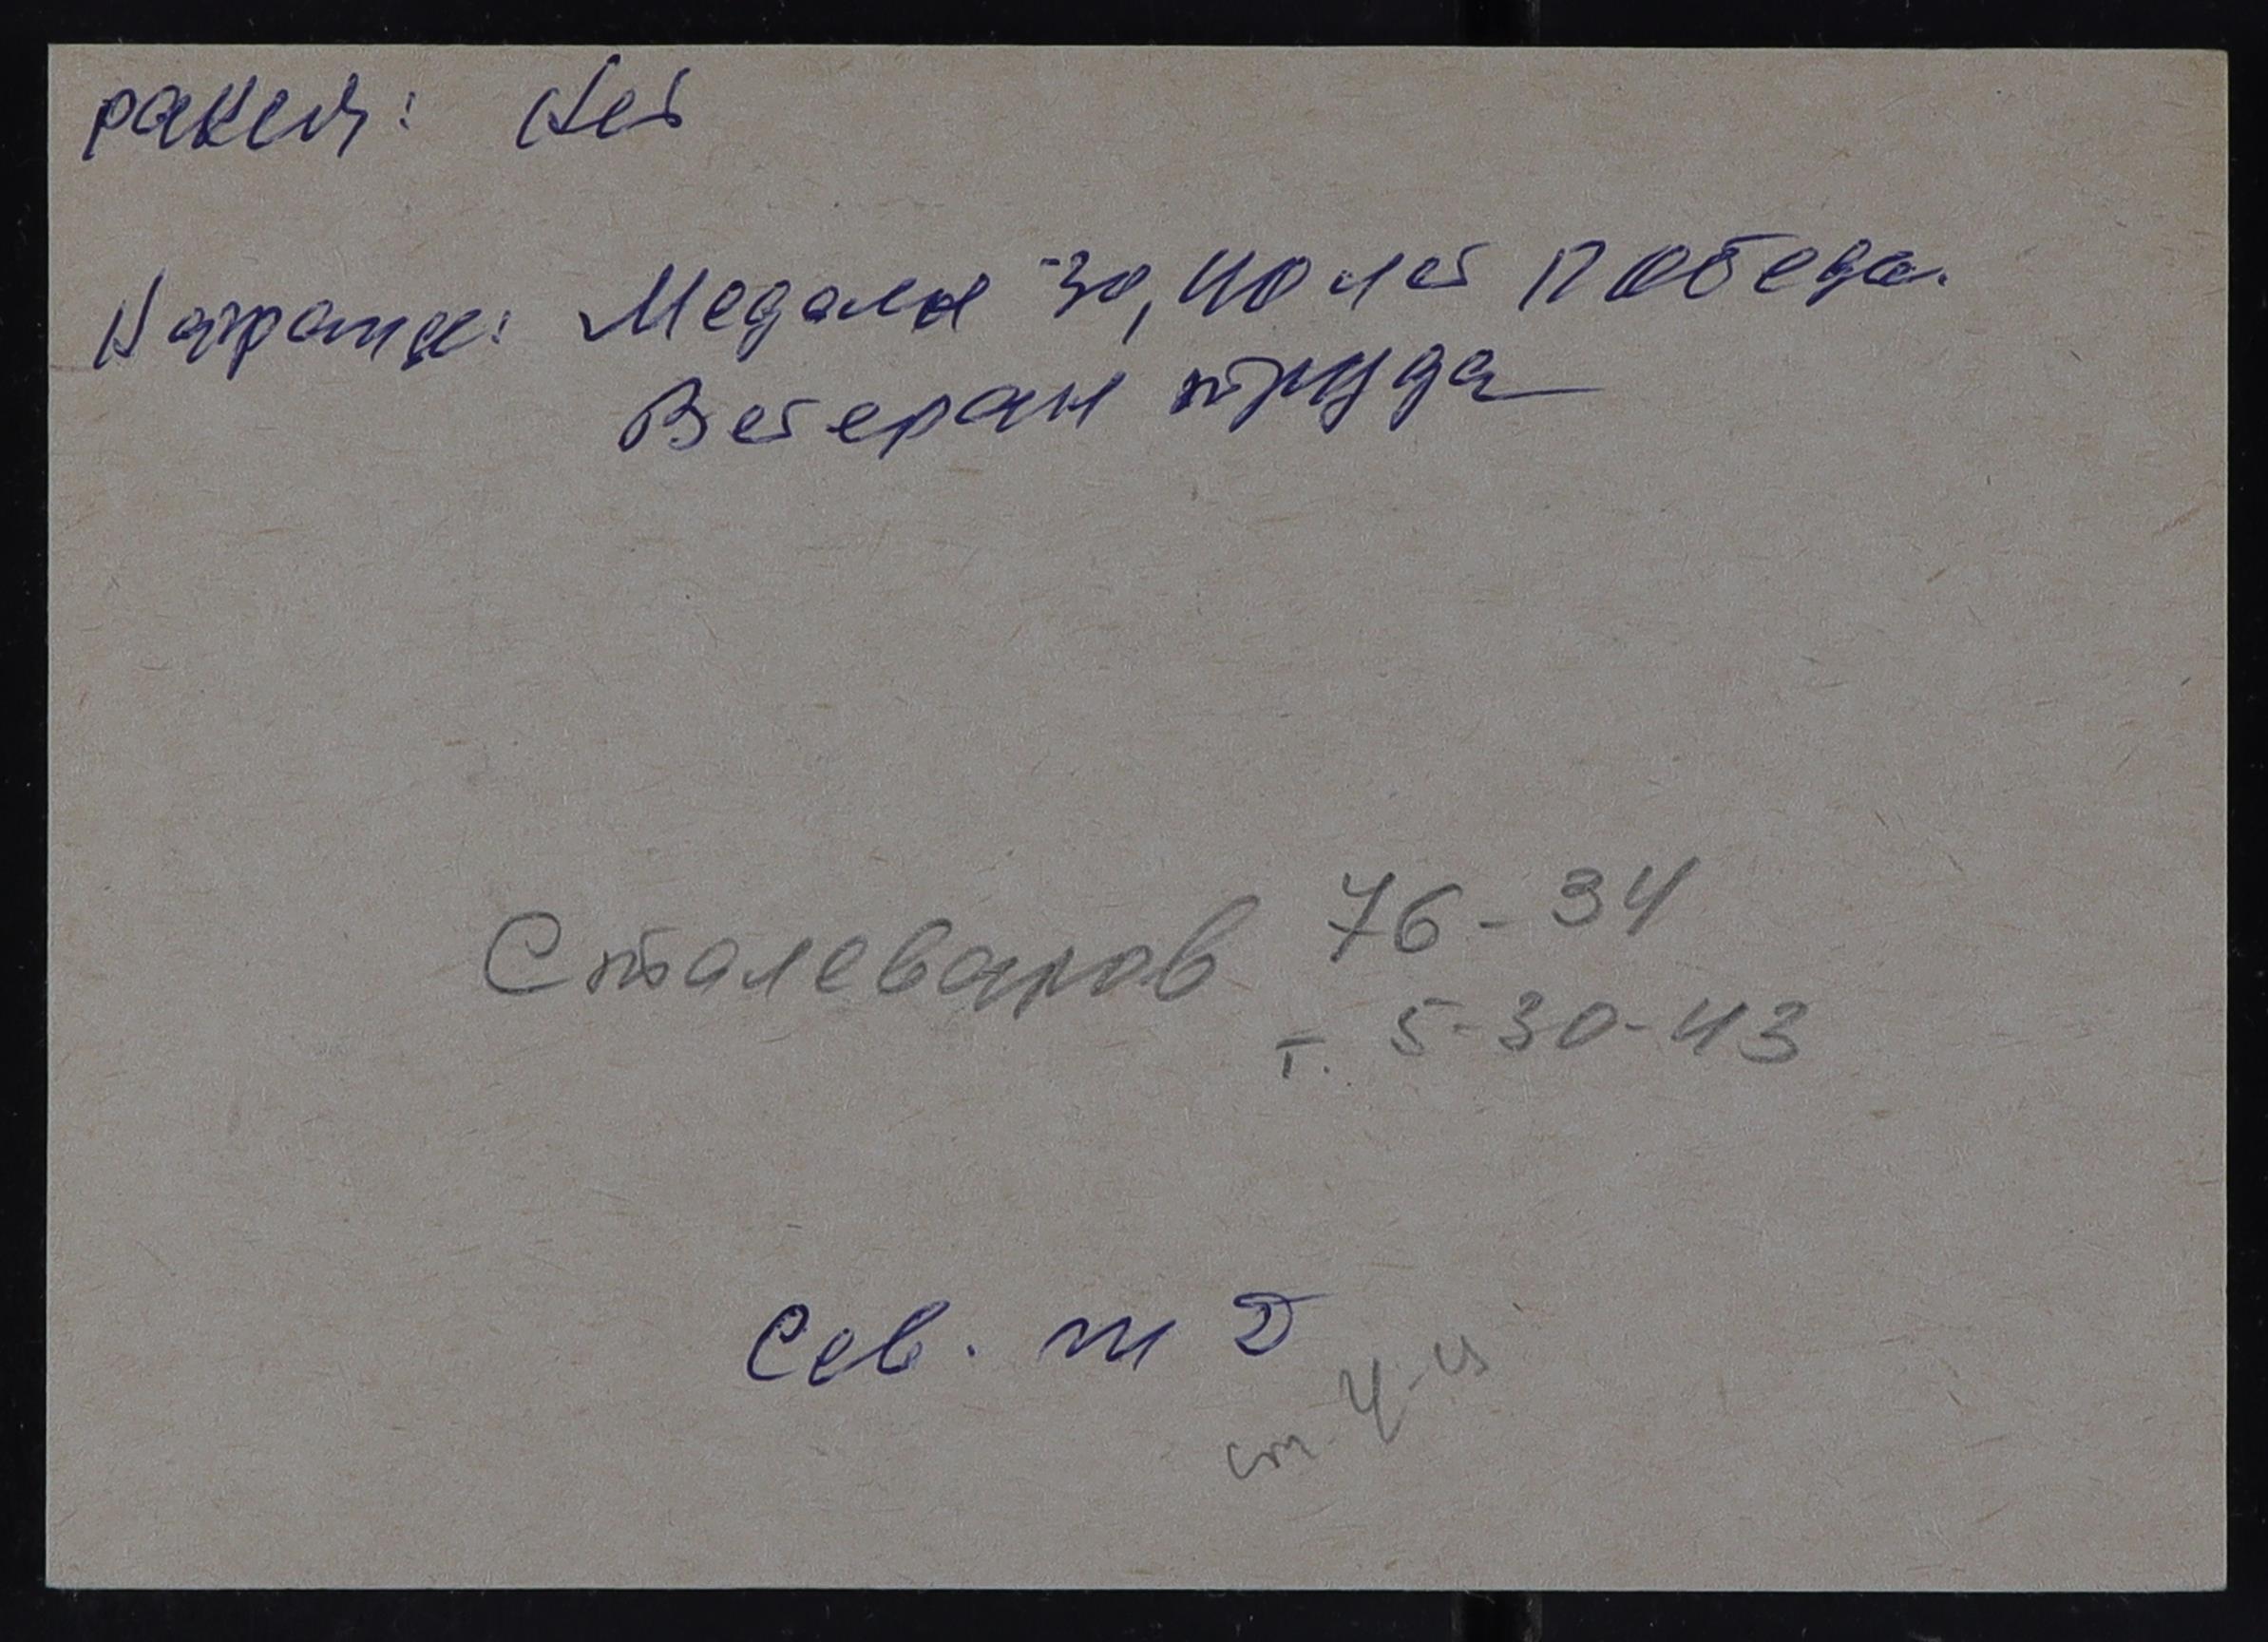 ранен: Нет
Награды: Медали 30, 40 лет Победы.
Ветеран труда
Сталеваров 76-34
т. 5-30-43
Сев. т
ст.